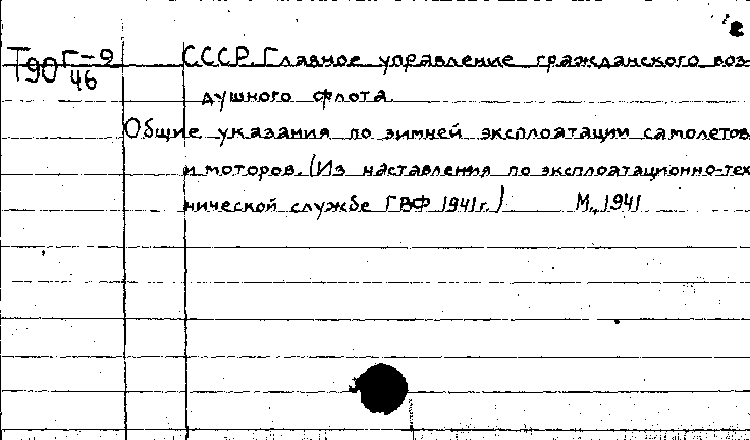 Т90 Г-9
46
СССР. Главное управление гражданского воз-
душного флота.
Общие указания по зимней эксплоатации самолетов
и моторов. (Из наставления по эксплоатационно-тех
нической службе ГВФ 1941г.) М., 1941